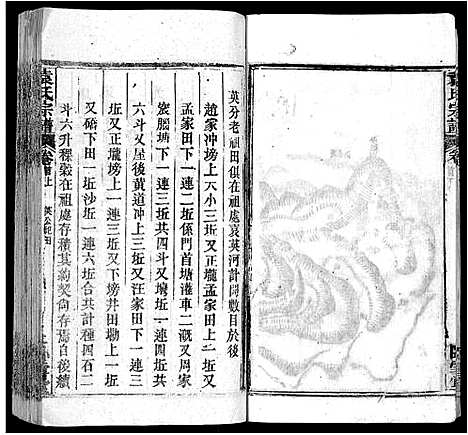 英分老祖田俱在祖處袁英河計開數目於後
趙家冲塝上大小三坵又正壠孟家田上二坵又
孟家田下一連二坵係門首塘灌車二溉又周家
塘一連三坵共四斗又壙坵一連三坵共
六斗又屋後黄道冲上三坵又汪家田下一連三
坵又正壠塝上一連三坵又下塝井田塝上一坵
又硚下田一坵沙坵一連六坵合共計種四石二
斗六升稞穀在祖處存積其約契尚存焉自後續
袁氏宗譜
卷首上
英公祀田
袁氏宗譜